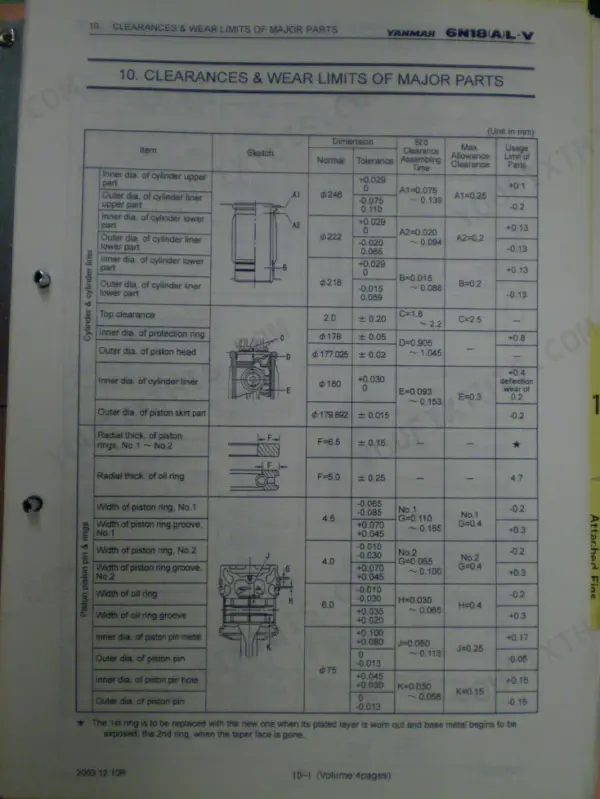 10. CLEARANCES & WEAR LIMITS OF MAJOR PARTS
YANMAR 6N18(A)L-V
10. CLEARANCES & WEAR LIMITS OF MAJOR PARTS
(Unit in mm)
Item Sketch Dimension Std Clearance Assembling Time Max Allowance Clearance Usage Limit of Parts
Normal Tolerance
Cylinder & cylinder liner
Inner dia. of cylinder upper part φ246 +0.029 0 A1=0.075 ~ 0.139 A1=0.25 +0.1
Outer dia. of cylinder liner upper part -0.075 0.110 -0.2
A1
A2
B
Inner dia. of cylinder lower part φ222 +0.029 0 A2=0.020 ~ 0.094 A2=0.2 +0.13
Outer dia. of cylinder liner lower part -0.020 0.065 -0.13
Inner dia. of cylinder lower part φ218 +0.029 0 B=0.015 ~ 0.088 B=0.2 +0.13
Outer dia. of cylinder liner lower part -0.015 0.059 -0.13
Top clearance 2.0 ± 0.20 C=1.8 ~ 2.2 C=2.5 —
Inner dia. of protection ring φ178 ± 0.05 D=0.905 ~ 1.045 — +0.8
Outer dia. of piston head φ177.025 ± 0.02 —
C
D
E
Inner dia. of cylinder liner φ180 +0.030 0 E=0.093 ~ 0.153 E=0.3 +0.4 deflection wear of 0.2
Outer dia. of piston skirt part φ179.892 ± 0.015 -0.2
Piston piston pin & rings
Radial thick. of piston rings, No.1 ~ No.2 F F=6.5 ± 0.15 — — ★
Radial thick. of oil ring F F=5.0 ± 0.25 — — 4.7
Width of piston ring, No.1 4.5 -0.065 -0.085 No.1 G=0.110 ~ 0.155 No.1 G=0.4 -0.2
Width of piston ring groove, No.1 +0.070 +0.045 +0.3
Width of piston ring, No.2 4.0 -0.010 -0.030 No.2 G=0.055 ~ 0.100 No.2 G=0.4 -0.2
Width of piston ring groove, No.2 +0.070 +0.045 +0.3
J
G
H
K
Width of oil ring 6.0 -0.010 -0.030 H=0.030 ~ 0.065 H=0.4 -0.2
Width of oil ring groove +0.035 +0.020 +0.3
Inner dia. of piston pin metal φ75 +0.100 +0.080 J=0.080 ~ 0.113 J=0.25 +0.17
Outer dia. of piston pin 0 -0.013 -0.08
Inner dia. of piston pin hole +0.045 +0.030 K=0.030 ~ 0.058 K=0.15 +0.15
Outer dia. of piston pin 0 -0.013 -0.15
★ The 1st ring is to be replaced with the new one when its plated layer is worn out and base metal begins to be
exposed, the 2nd ring, when the taper face is gone.
2003.12.10R
15-1 (Volume 4pages)
1
Attached Figs